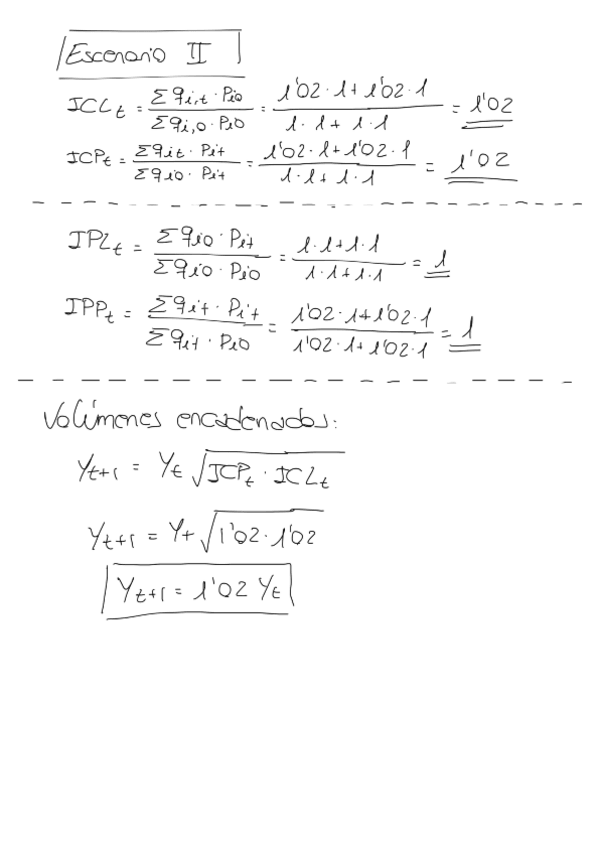 Escenario II
ICL_t = Σ q_i,t · P_i0 / Σ q_i,0 · P_i0 = 1'02 · 1 + 1'02 · 1 / 1 · 1 + 1 · 1 = 1'02
ICP_t = Σ q_it · P_it / Σ q_i0 · P_it = 1'02 · 1 + 1'02 · 1 / 1 · 1 + 1 · 1 = 1'02
IPL_t = Σ q_i0 · P_it / Σ q_i0 · P_i0 = 1 · 1 + 1 · 1 / 1 · 1 + 1 · 1 = 1
IPP_t = Σ q_it · P_it / Σ q_it · P_i0 = 1'02 · 1 + 1'02 · 1 / 1'02 · 1 + 1'02 · 1 = 1
Volúmenes encadenados:
Y_t+1 = Y_t √ICP_t · ICL_t
Y_t+1 = Y_t √1'02 · 1'02
Y_t+1 = 1'02 Y_t